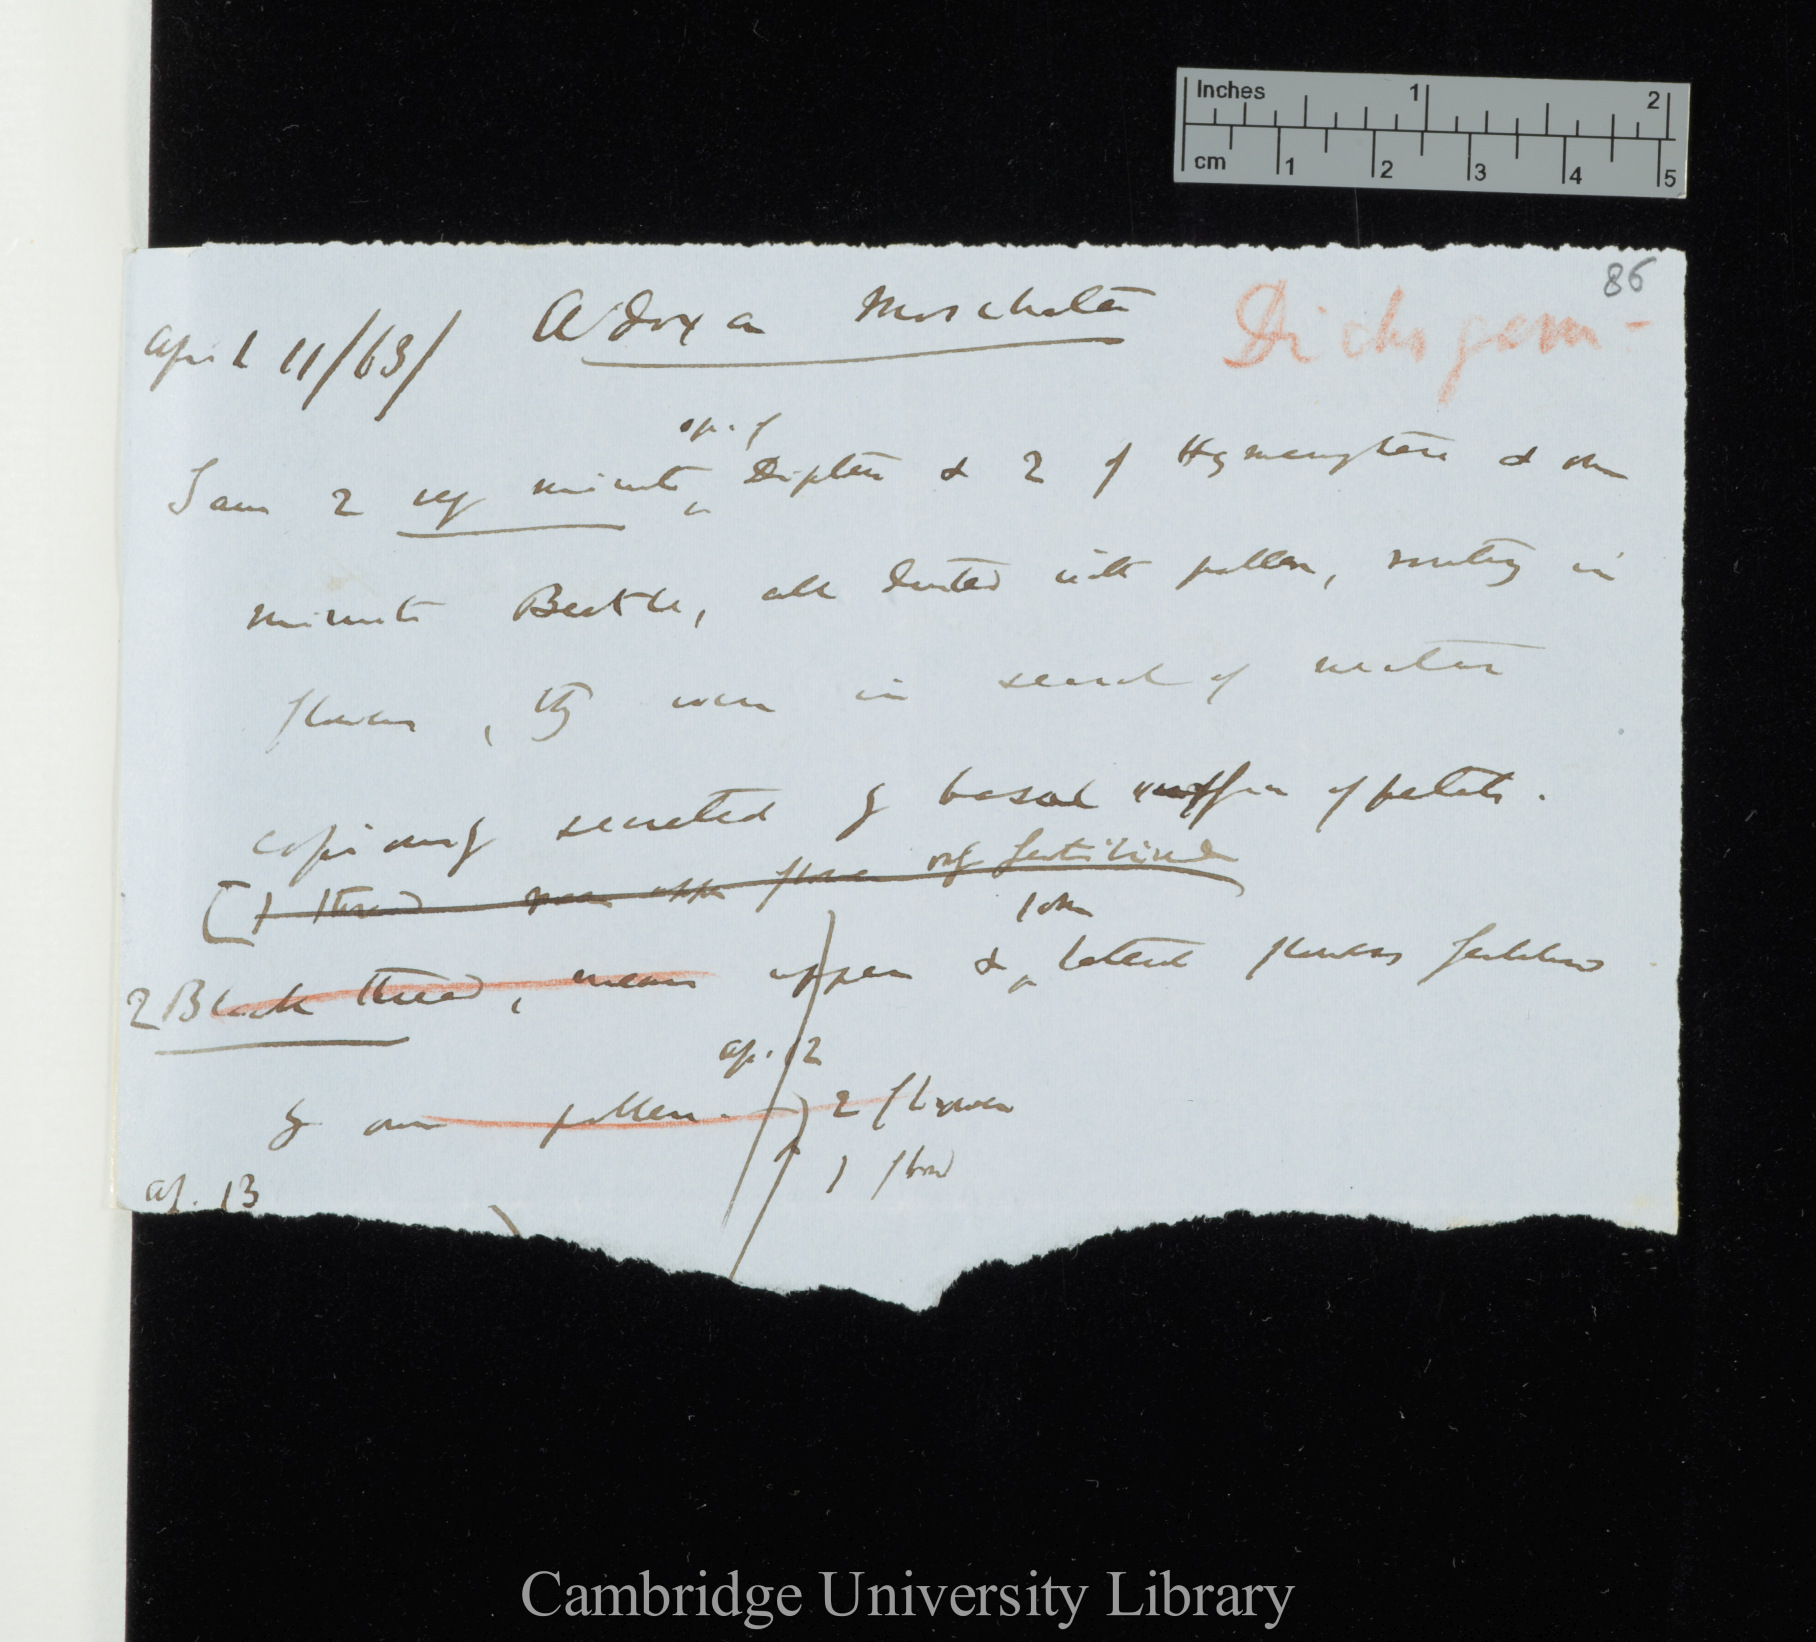 Inches 1 2
cm 1 2 3 4 5
86
April 11/63/ Adoxa Moschata Dichogam-
sp. of
Saw 2 very minute ^ Diptera & 2 of Hymenoptera & one
minute Beetle, all dusted with pollen, rooting in
flowers, they were in search of nectar
copiously secreted by basal of petals.
[1 thread means upper flower only fertilised
1 other
2 Black thread, means upper & ^ lateral flowers fertilised
ap. 12
by own pollen. —) 2 flowers
1 flower
ap. 13
Cambridge University Library